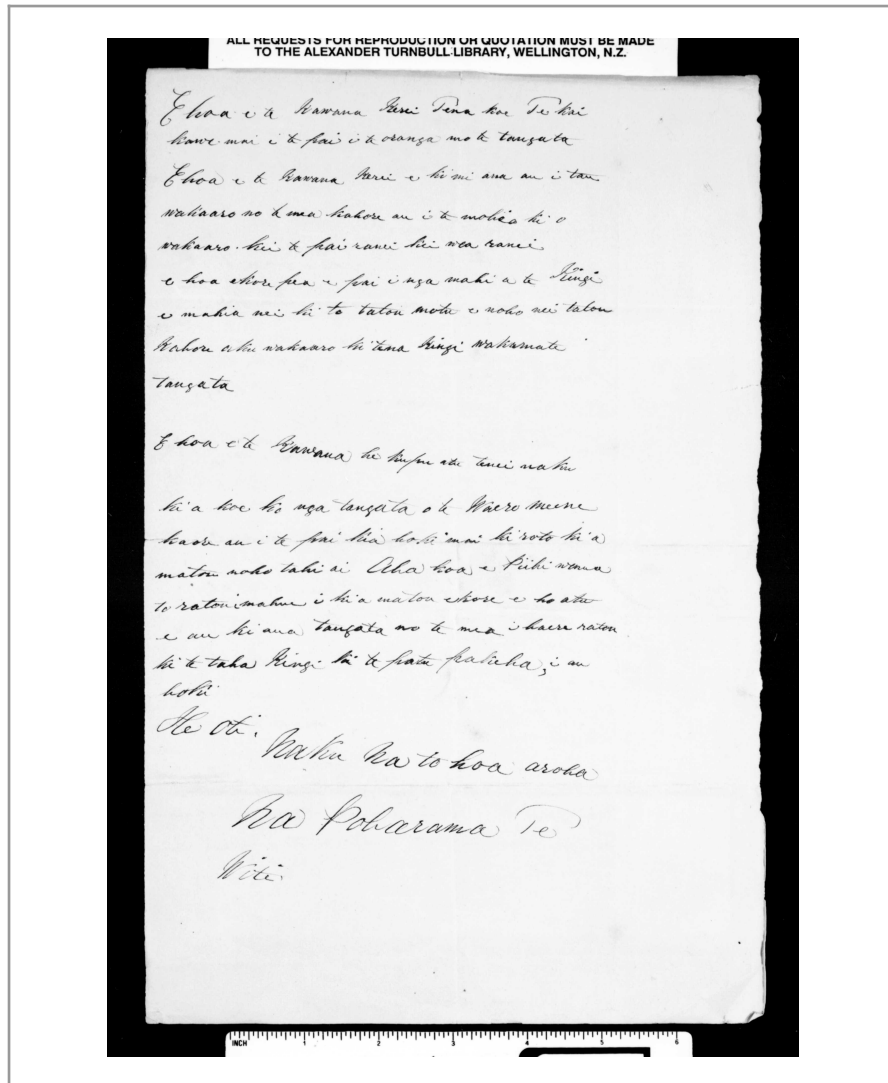 ALL REQUESTS FOR REPRODUCTION OR QUOTATION MUST BE MADE
TO THE ALEXANDER TURNBULL LIBRARY, WELLINGTON, N.Z.
E hoa e te Kawana Kerei Tena koe Te kai
kawe mai i te pai i te oranga mo te tangata
E hoa e te Kawana Kerei e kimi ana au i tau
wakaaro no te mea kahore au i te mohio ki o
wakaaro kei te pai ranei kei wea ranei
e hoa ekore pea e pai i nga mahi a te Kingi
e mahia nei ki to tatou motu e noho nei tatou
Kahore aku wakaaro ki tena Kingi wakamate
tangata
E hoa e te Kawana he kupu atu tenei naku
ki a koe ko nga tangata o te Waero meene
kaore au i te pai kia hoki mai ki roto ki a
matou noho tahi ai Aha koa e Piihi wenua
to ratou i mahue i ki a matou ekore e ho atu
e au ki aua tangata no te mea i haere ratou
ki te taha Kingi ki te patu pakeha, i au
hoki
He oti.
Naku Na to hoa aroha
Na Poharama Te
Witi.
INCH 1 2 3 4 5 6